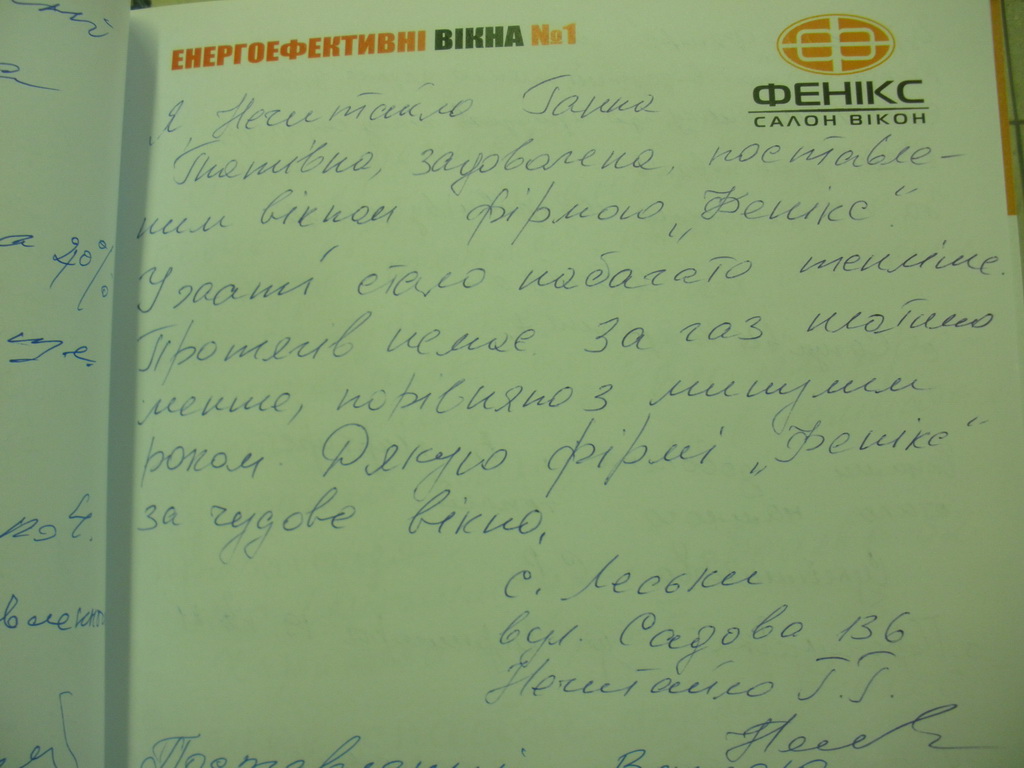 ЕНЕРГОЕФЕКТИВНІ ВІКНА №1
ФЕНІКС
САЛОН ВІКОН
Я, Нечитайло Ганна
Гнатівна, задоволена, поставле-
ним вікном фірмою „Фенікс“.
У хаті стало набагато тепліше.
Протягів немає. За газ платимо
менше, порівняно з минулим
роком. Дякую фірмі „Фенікс“
за чудове вікно.
с. Леськи
вул. Садова 136
Нечитайло Г.Г.
20%
ще
по 4.